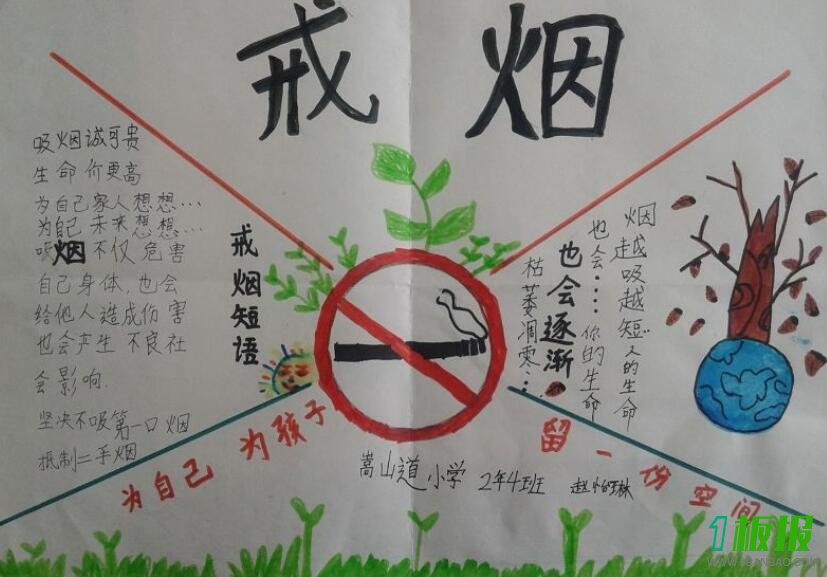 戒烟
吸烟诚可贵
生命价更高
为自己家人想想…
为自己未来想想…
吸烟不仅危害
自己身体,也会
给他人造成伤害
也会产生不良社
会影响.
坚决不吸第一口烟
抵制二手烟
戒烟短语
烟越吸越短…人的生命
也会…你的生命
也会逐渐
枯萎凋零…
为自己 为孩子 留一份空间
嵩山道小学 2年4班 赵怡琳
1板报